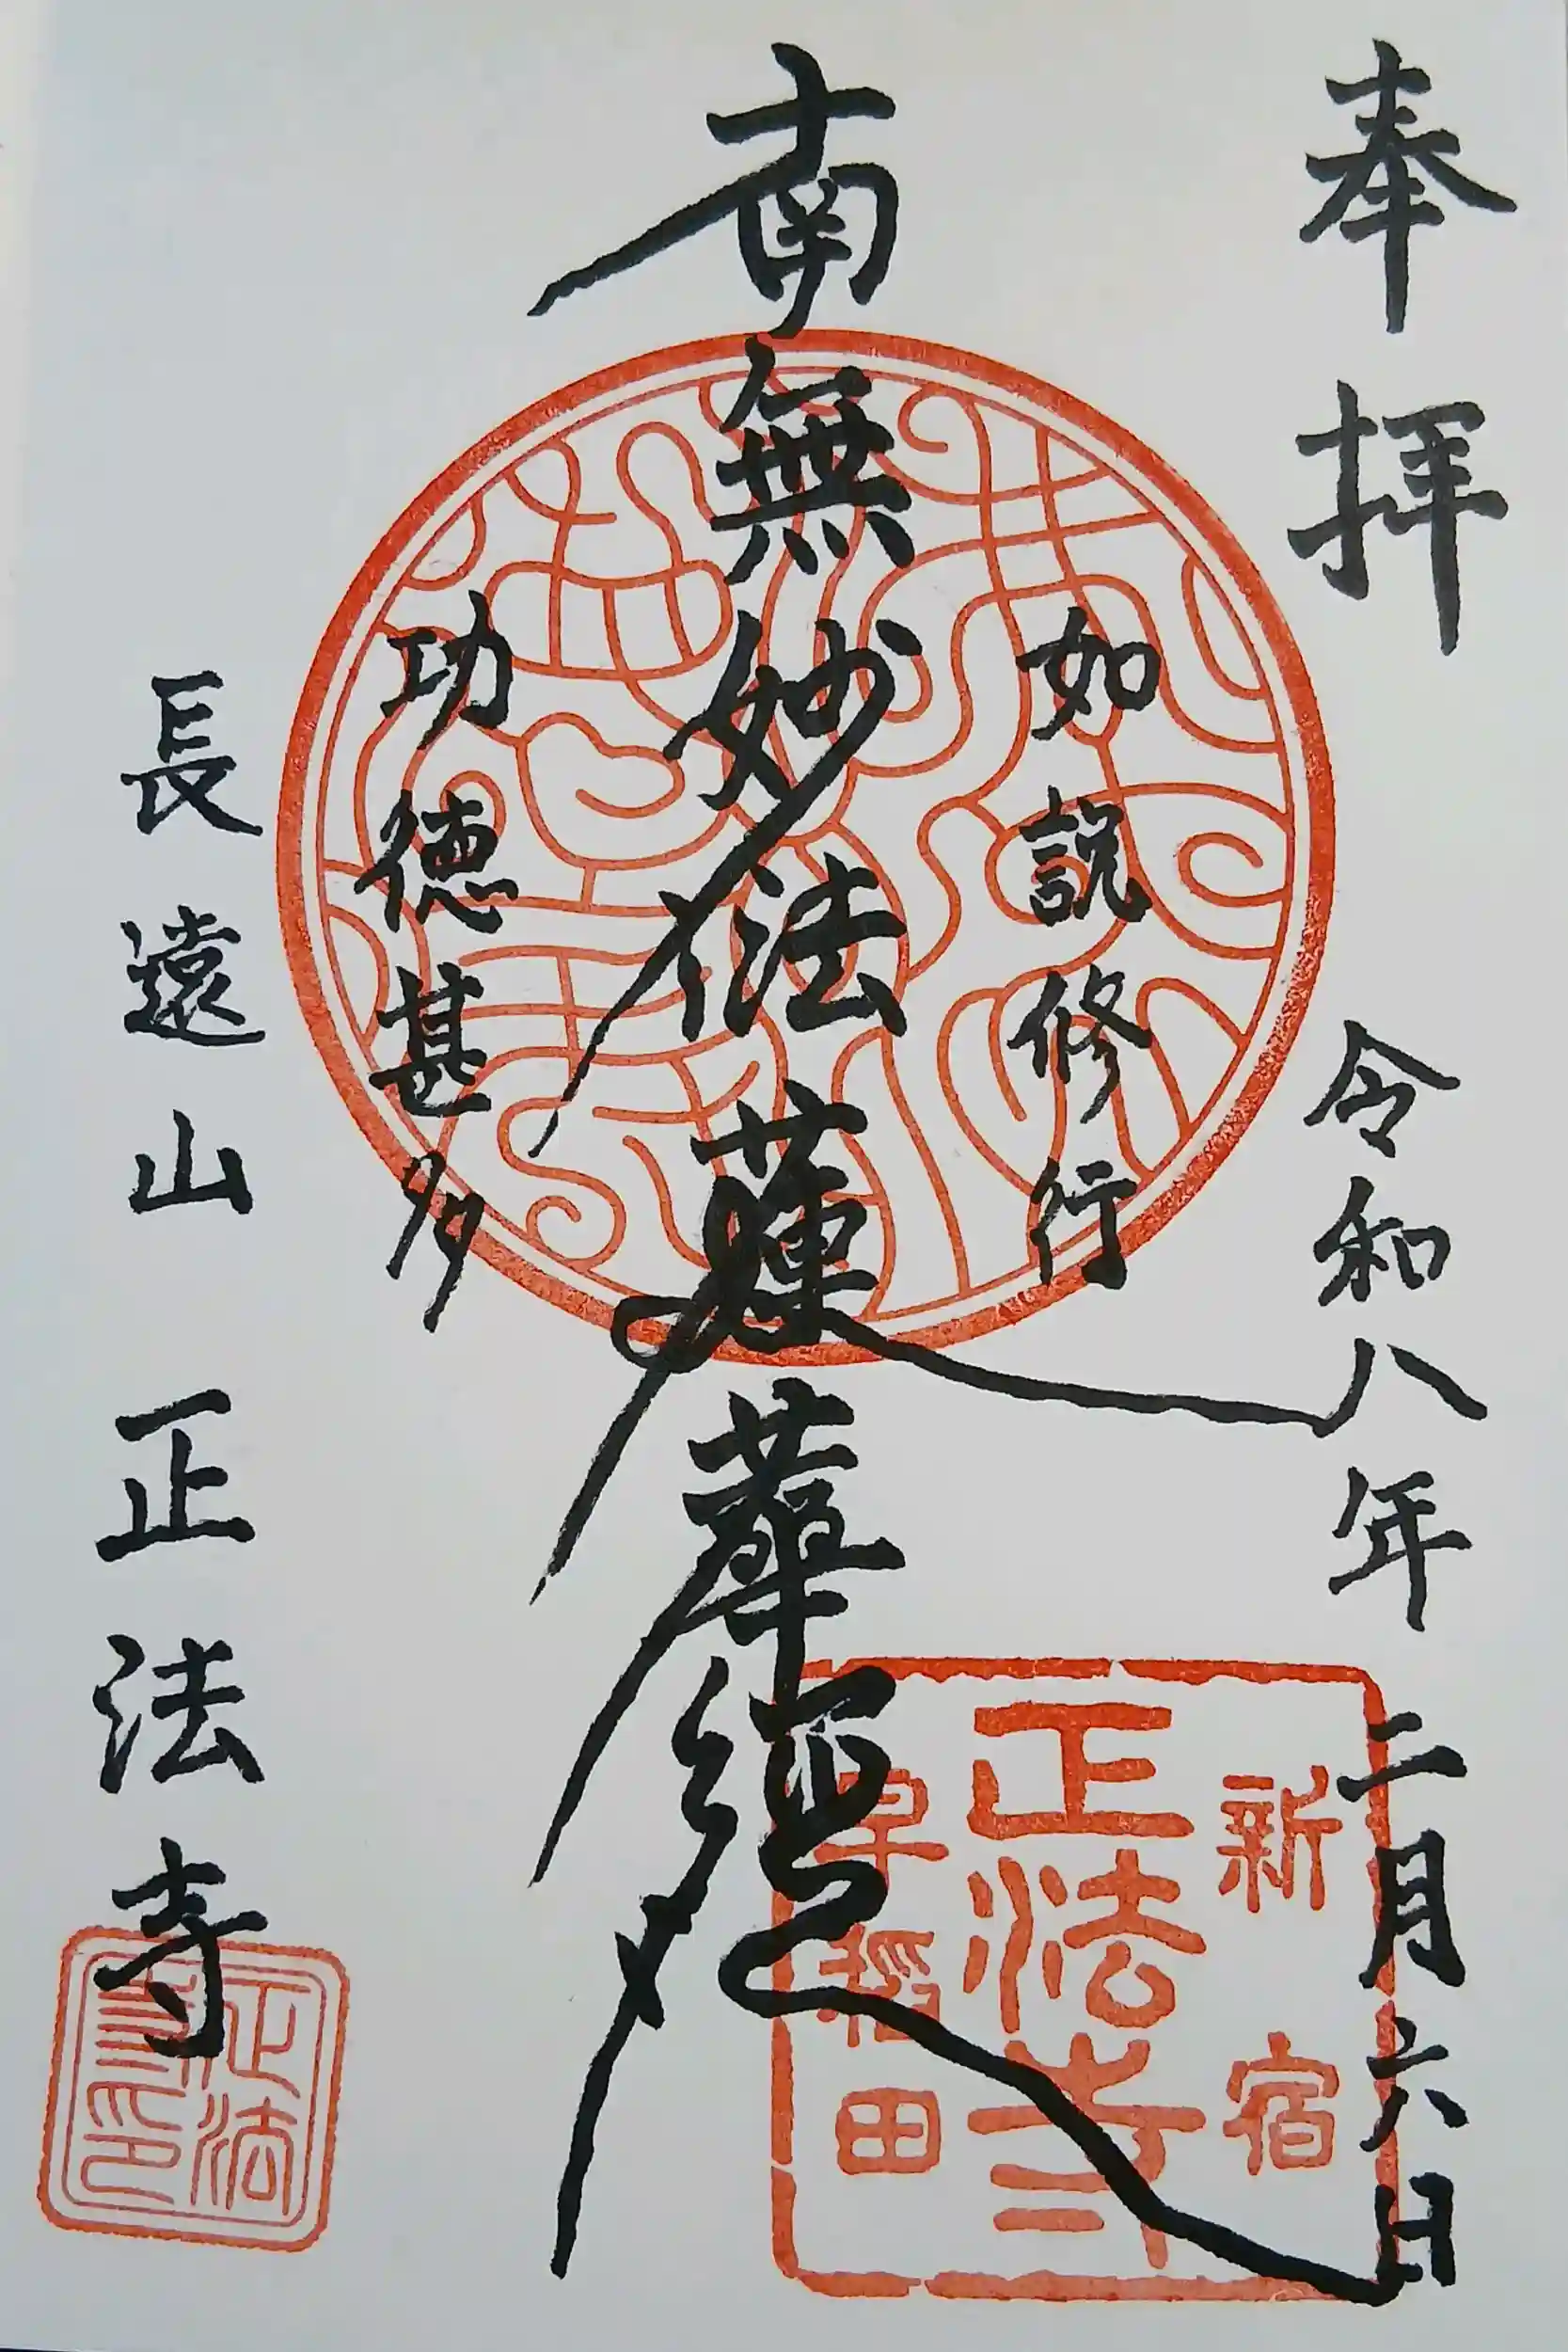 奉拝
令和八年二月六日
如説修行
南無妙法蓮華經
功徳甚多
長遠山 正法寺
新宿
正法寺
早稲田
正法
寺印